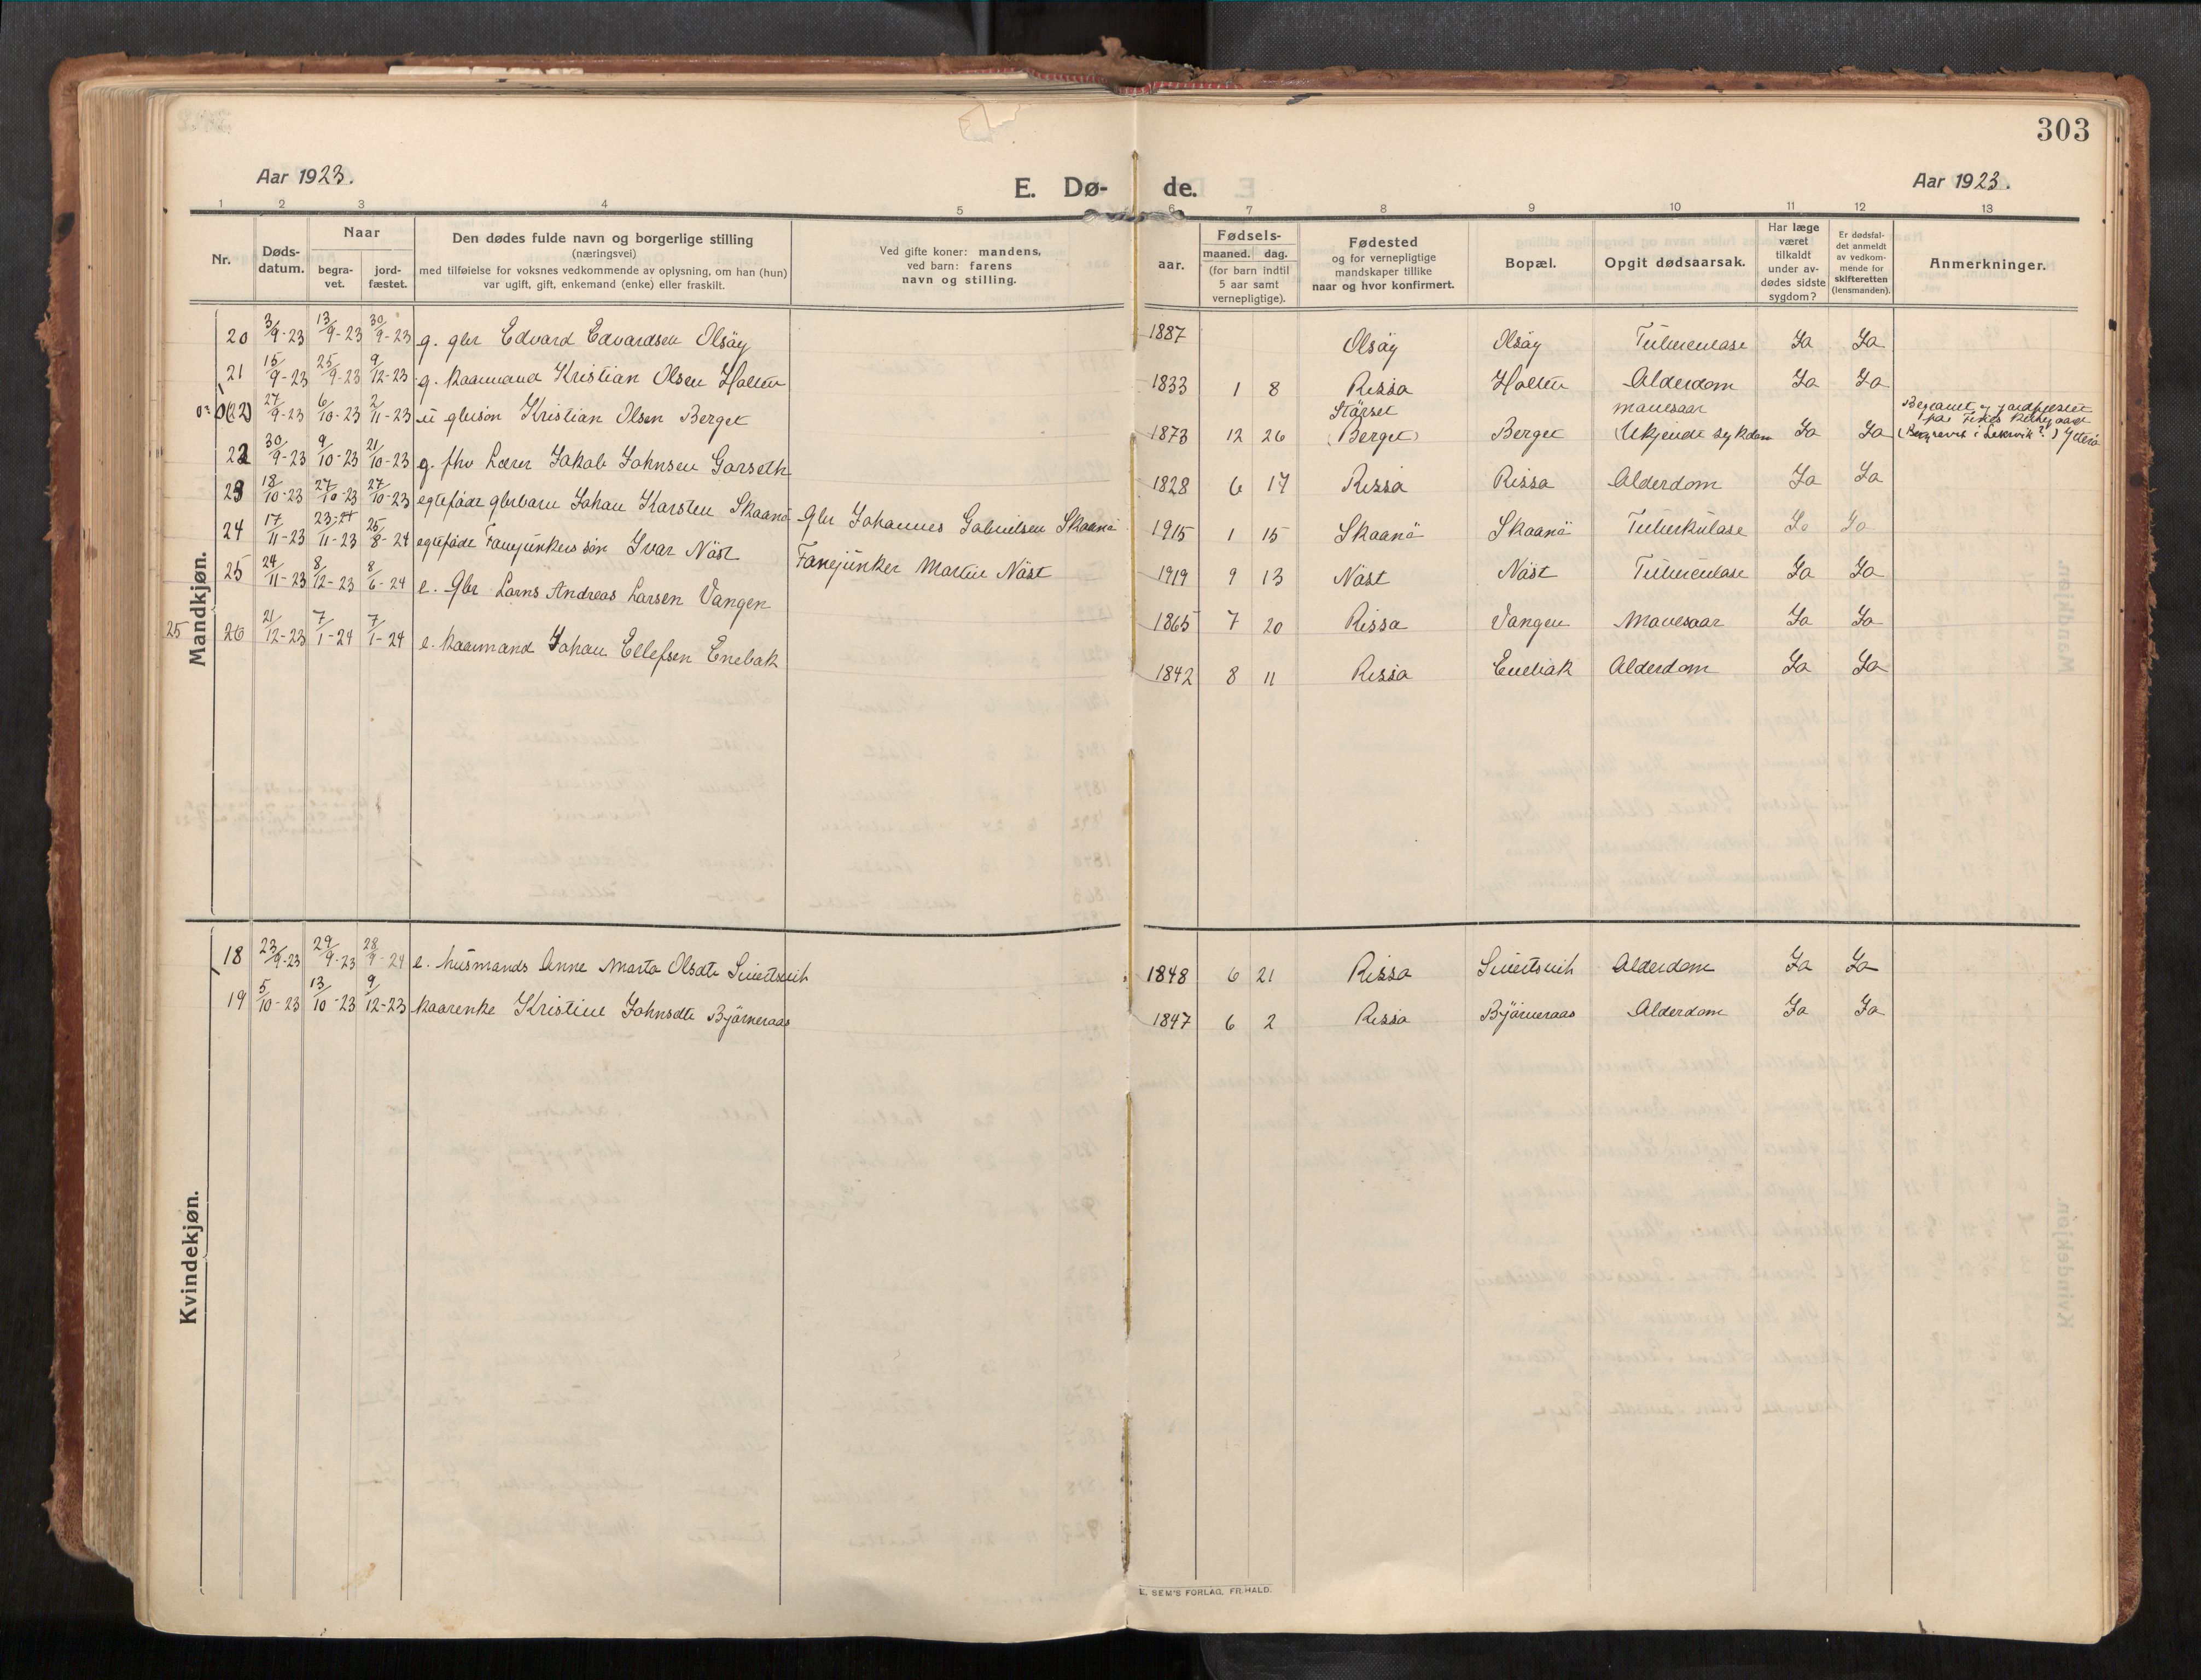 303
Aar 1923.
E. Dø- de.
Aar 1923.
1 2 3 4 5 6 7 8 9 10 11 12 13
Nr.
Døds-
datum.
Naar
begra-
vet.
jord-
fæstet.
Den dødes fulde navn og borgerlige stilling
(næringsvei)
med tilføielse for voksnes vedkommende av oplysning, om han (hun)
var ugift, gift, enkemand (enke) eller fraskilt.
Ved gifte koner: mandens,
ved barn: farens
navn og stilling.
Fødsels-
aar.
maaned. dag.
(for barn indtil
5 aar samt
vernepligtige).
Fødested
og for vernepligtige
mandskaper tillike
naar og hvor konfirmert.
Bopæl.
Opgit dødsaarsak.
Har læge
været
tilkaldt
under av-
dødes sidste
sygdom?
Er dødsfal-
det anmeldt
av vedkom-
mende for
skifteretten
(lensmanden).
Anmerkninger.
Mandkjøn.
20 3/9-23 13/9-23 30/9-23 g. gbr Edvard Edvardsen Olsöy 1887 Olsöy Olsöy Tuberculose Ja Ja
21 15/9-23 25/9-23 9/12-23 g. kaarmand Kristian Olsen Holten 1833 1 8 Rissa Holten Alderdom Ja Ja
0(22) 27/9-23 6/10-23 2/11-23 u gbrsön Kristian Olsen Berget 1873 12 26 Störset (Berget) Berget mavesaar (Ukjendt sykdom Ja Ja
Begravet og jordfæstet
paa
(Begravet i Leksvik?)
22 30/9-23 9/10-23 21/10-23 g. fhv Lærer Jakob Johnsen Gorseth 1828 6 17 Rissa Rissa Alderdom Ja Ja
23 18/10-23 27/10-23 27/10-23 egtefödt gbrbarn Johan Karsten Skaanö Gbr Johannes Gabrielsen Skaanö 1915 1 15 Skaanö Skaanö Tuberkulose Ja Ja
24 17/11-23 23/11-23 25/8-24 egtefödt Fanejunkers sön Ivar Näst Fanejunker Martin Näst 1919 9 13 Näst Näst Tuberculose Ja Ja
25 24/11-23 8/12-23 8/6-24 e. Gbr Lorns Andreas Larsen Vangen 1865 7 20 Rissa Vangen Mavesaar Ja Ja
25 26 21/12-23 7/1-24 7/1-24 e. kaarmand Johan Ellefsen Enebak 1842 8 11 Rissa Enebak Alderdom Ja Ja
Kvindekjøn.
18 23/9-23 29/9-23 28/9-24 e. husmands Anne Marta Olsdt Sivertsvik 1848 6 21 Rissa Sivertsvik Alderdom Ja Ja
19 5/10-23 13/10-23 9/12-23 kaarenke Kristine Johnsdt Björneraas 1847 6 2 Rissa Björneraas Alderdom Ja Ja
E. SEM'S FORLAG, FR.HALD.